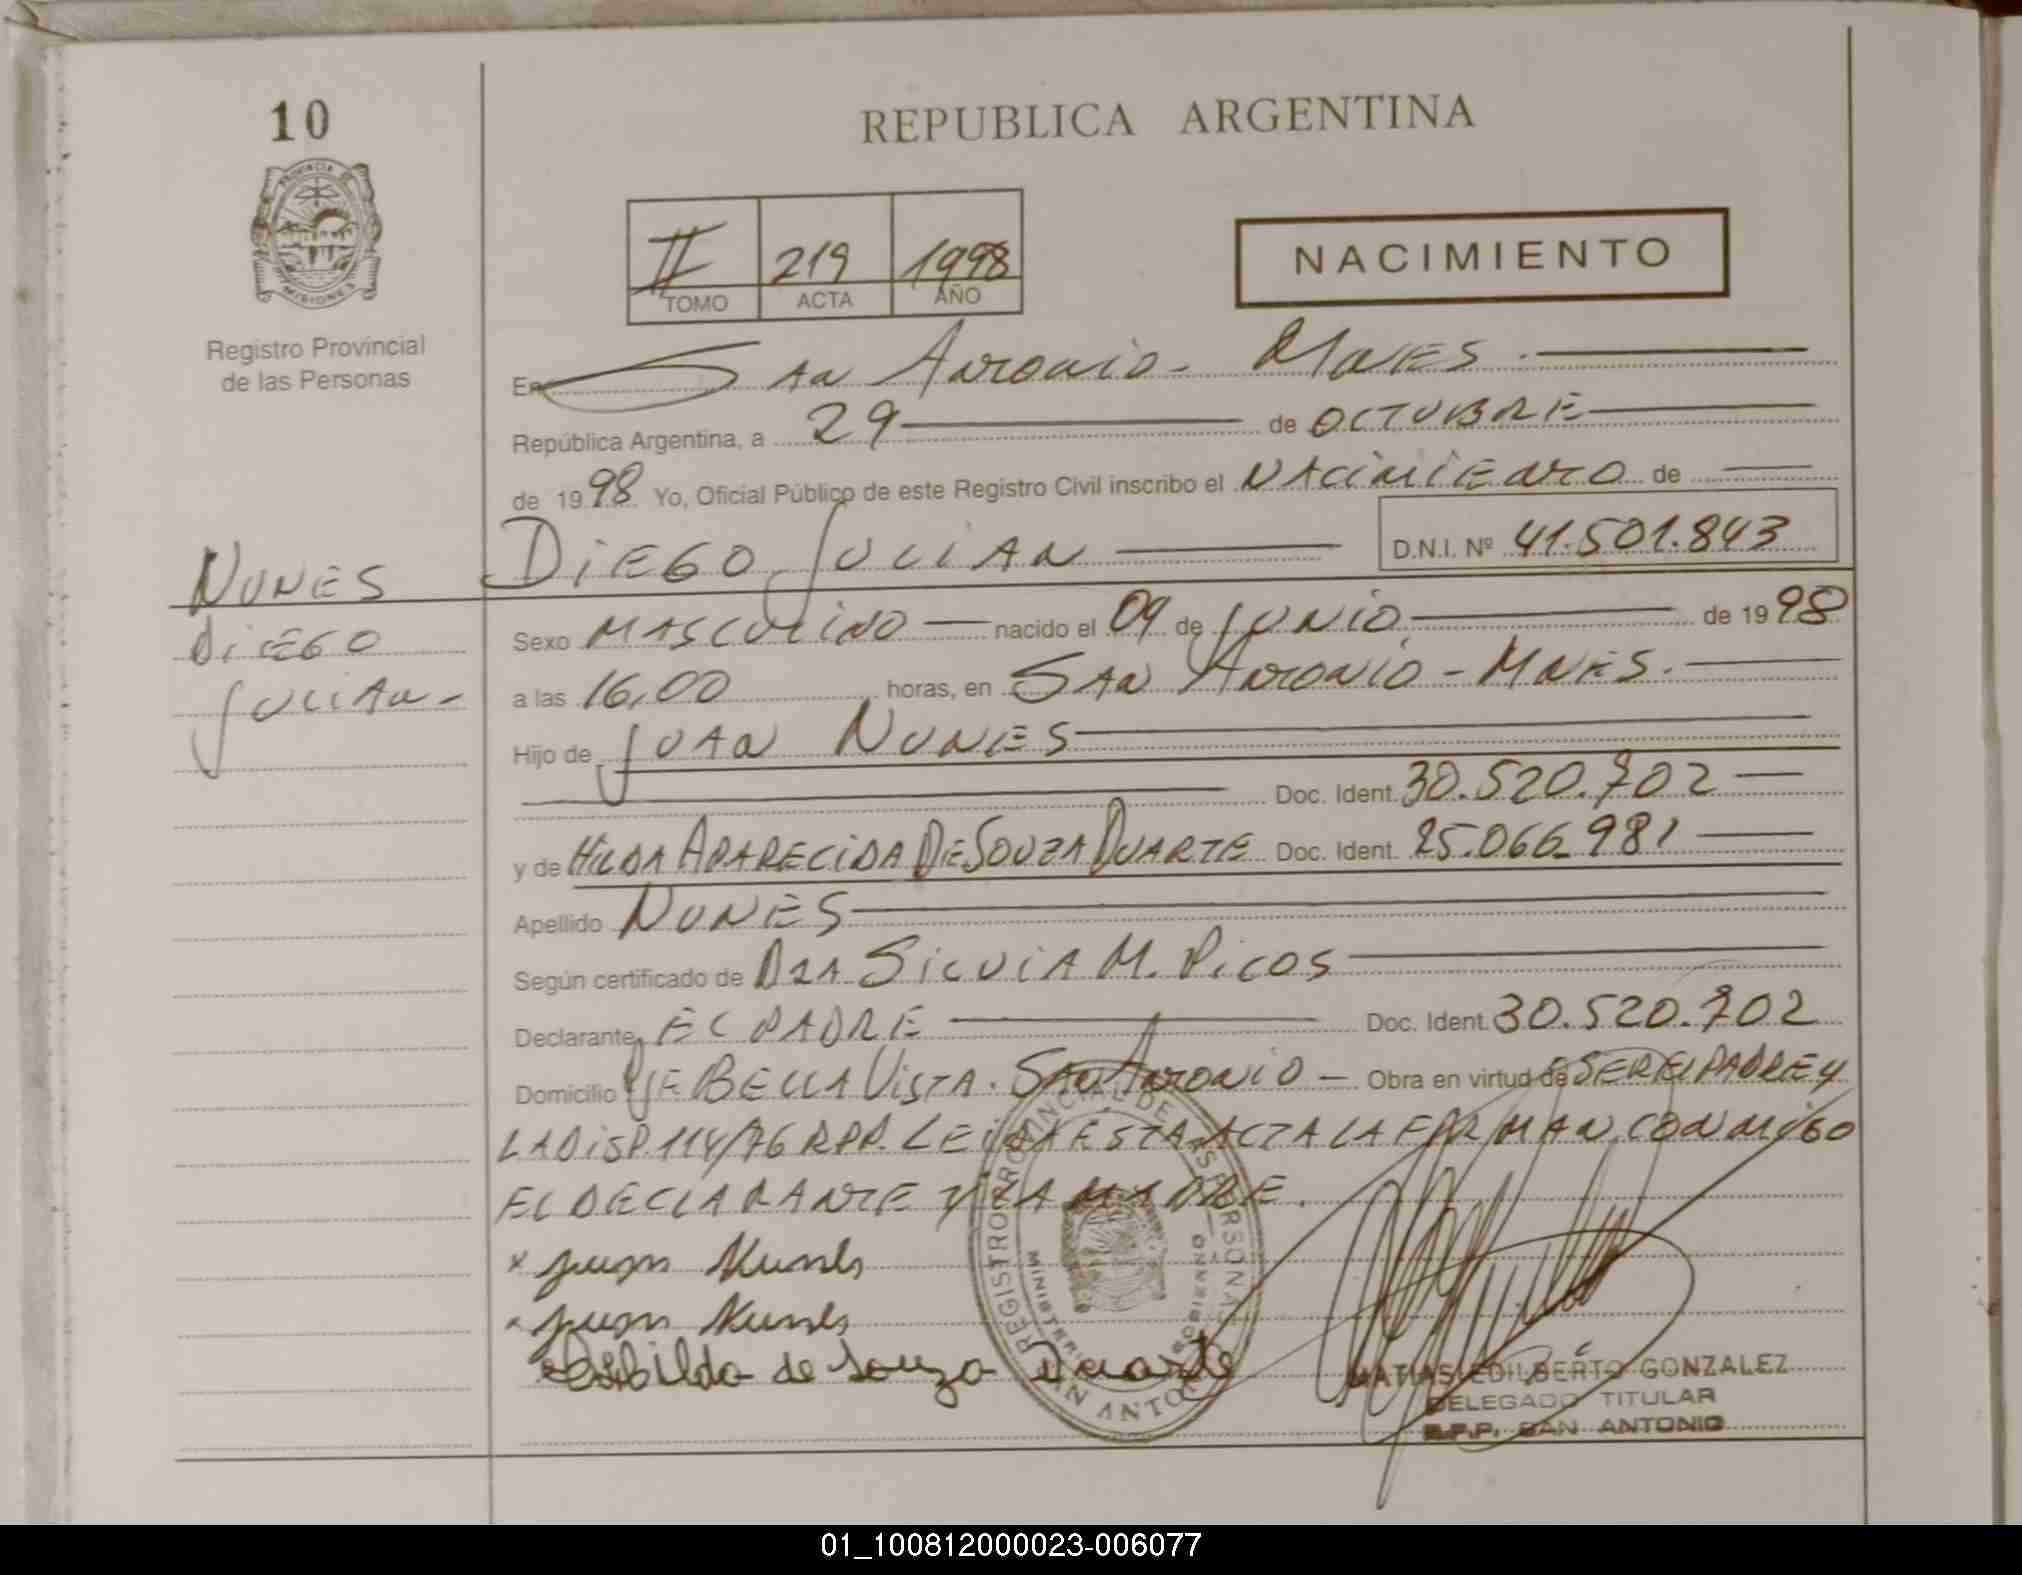 10
REPUBLICA ARGENTINA
PROVINCIA DE
MISIONES
Registro Provincial
de las Personas
II 219 1998
TOMO ACTA AÑO
NACIMIENTO
En San Antonio - Mnes.
República Argentina, a 29 de OCTUBRE
de 1998 Yo, Oficial Público de este Registro Civil inscribo el NACIMIENTO de
DIEGO JULIAN D.N.I. Nº 41.501.843
NUNES
DIEGO
JULIAN -
Sexo MASCULINO nacido el 09 de JUNIO de 1998
a las 16,00 horas, en SAN ANTONIO - MNES.
Hijo de JUAN NUNES
Doc. Ident. 30.520.702
y de HILDA APARECIDA DE SOUZA DUARTE Doc. Ident. 25.066.981
Apellido NUNES
Según certificado de DRA SILVIA M. PICOS
Declarante EL PADRE Doc. Ident. 30.520.702
Domicilio BELLA VISTA. SAN ANTONIO - Obra en virtud de SER EL PADRE Y
LA DISP. 114/76 RPP. LEIDA ESTA ACTA LA FIRMAN CONMIGO
EL DECLARANTE Y LA MADRE.
x juan Nunes
x juan Nunes
Hilda de Souza Duarte
REGISTRO PROVINCIAL DE LAS PERSONAS
SAN ANTONIO
MATIAS EDILBERTO GONZALEZ
DELEGADO TITULAR
R.P.P. SAN ANTONIO
01_100812000023-006077